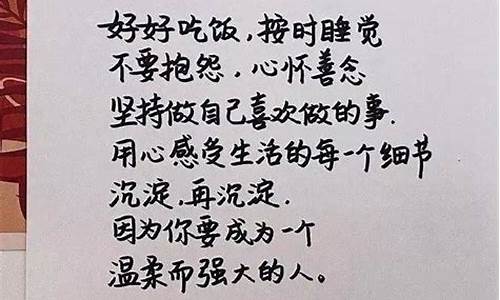 好好吃饭,按时睡觉
不要抱怨,心怀善念
坚持做自己喜欢做的事.
用心感受生活的每一个细节
沉淀,再沉淀.
因为你要成为一个
温柔而强大的人。